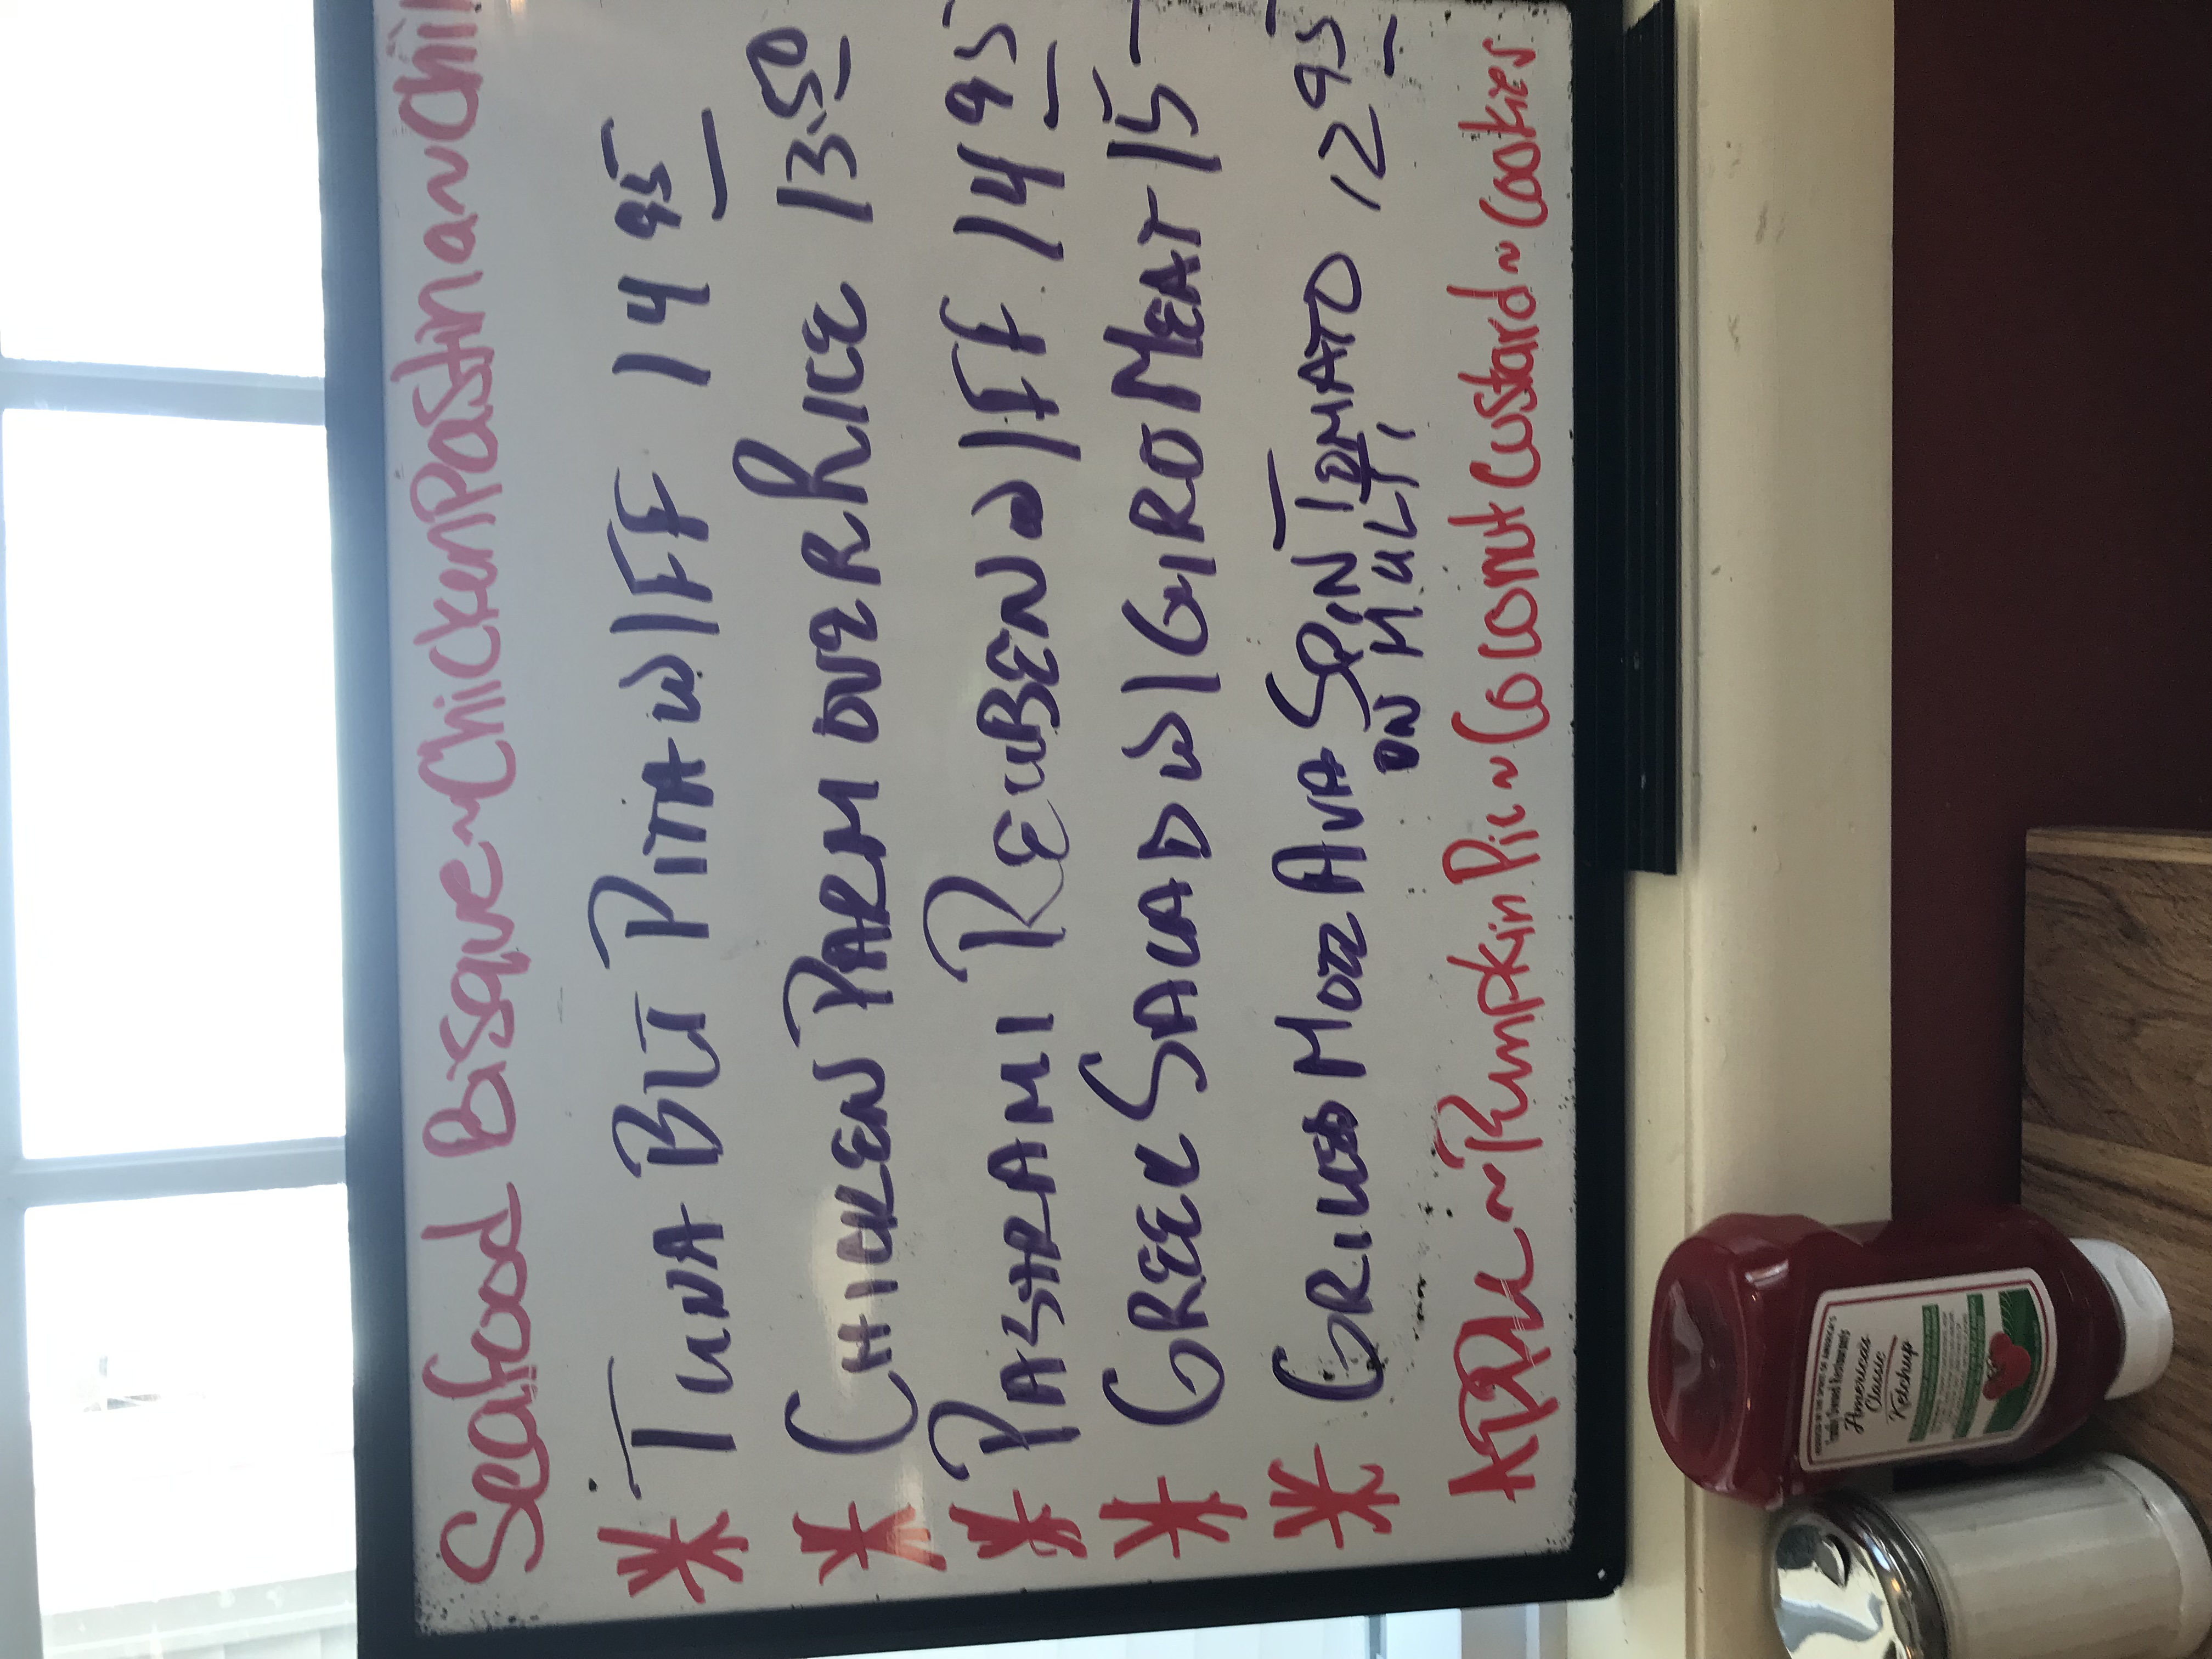 Seafood Bisque ~ Chicken Pastina ~ Chili
* TUNA BLT PITA W/FF 14 95
* CHICKEN PARM OVER RICE 13.50
* PASTRAMI REUBEN W/FF 14 95
* GREEK SALAD W/GIRO MEAT 15 -
* GRILLED MOZZ AVA SPIN TOMATO 12 95
ON MULTI
~ Pumpkin Pie ~ Coconut Custard ~ Cookies
America's
Classic
Ketchup